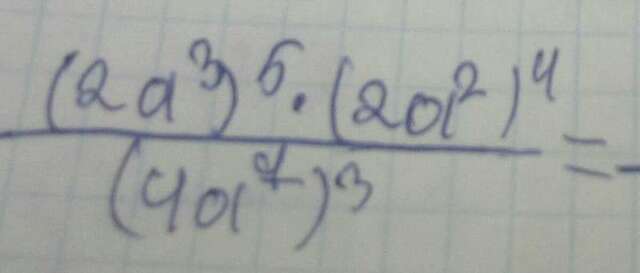 (2a³)⁵·(2a²)⁴
(4a⁷)³ =